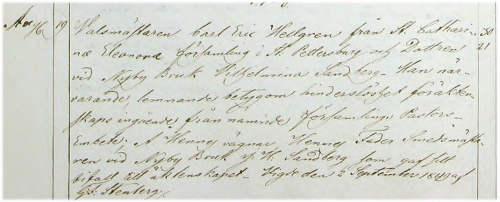 19 Valsmästaren Carl Eric Hellgren från St. Cathari- 30
næ Eleonora församling i St. Pettersburg och Dottren 21
vid Nyby Bruk Vilhelmina Sandberg. Han när-
varande, lemnande betyg om hinderslöshet för äkten-
skaps ingående från nämnde Församlings Pastors
Embete; å Hennes vägnar Hennes Fader Smedsmästa-
ren vid Nyby Bruk Sandberg som gaf sitt
bifall till äktenskapet. Vigde den 2 September 1841 af
Stenberg.